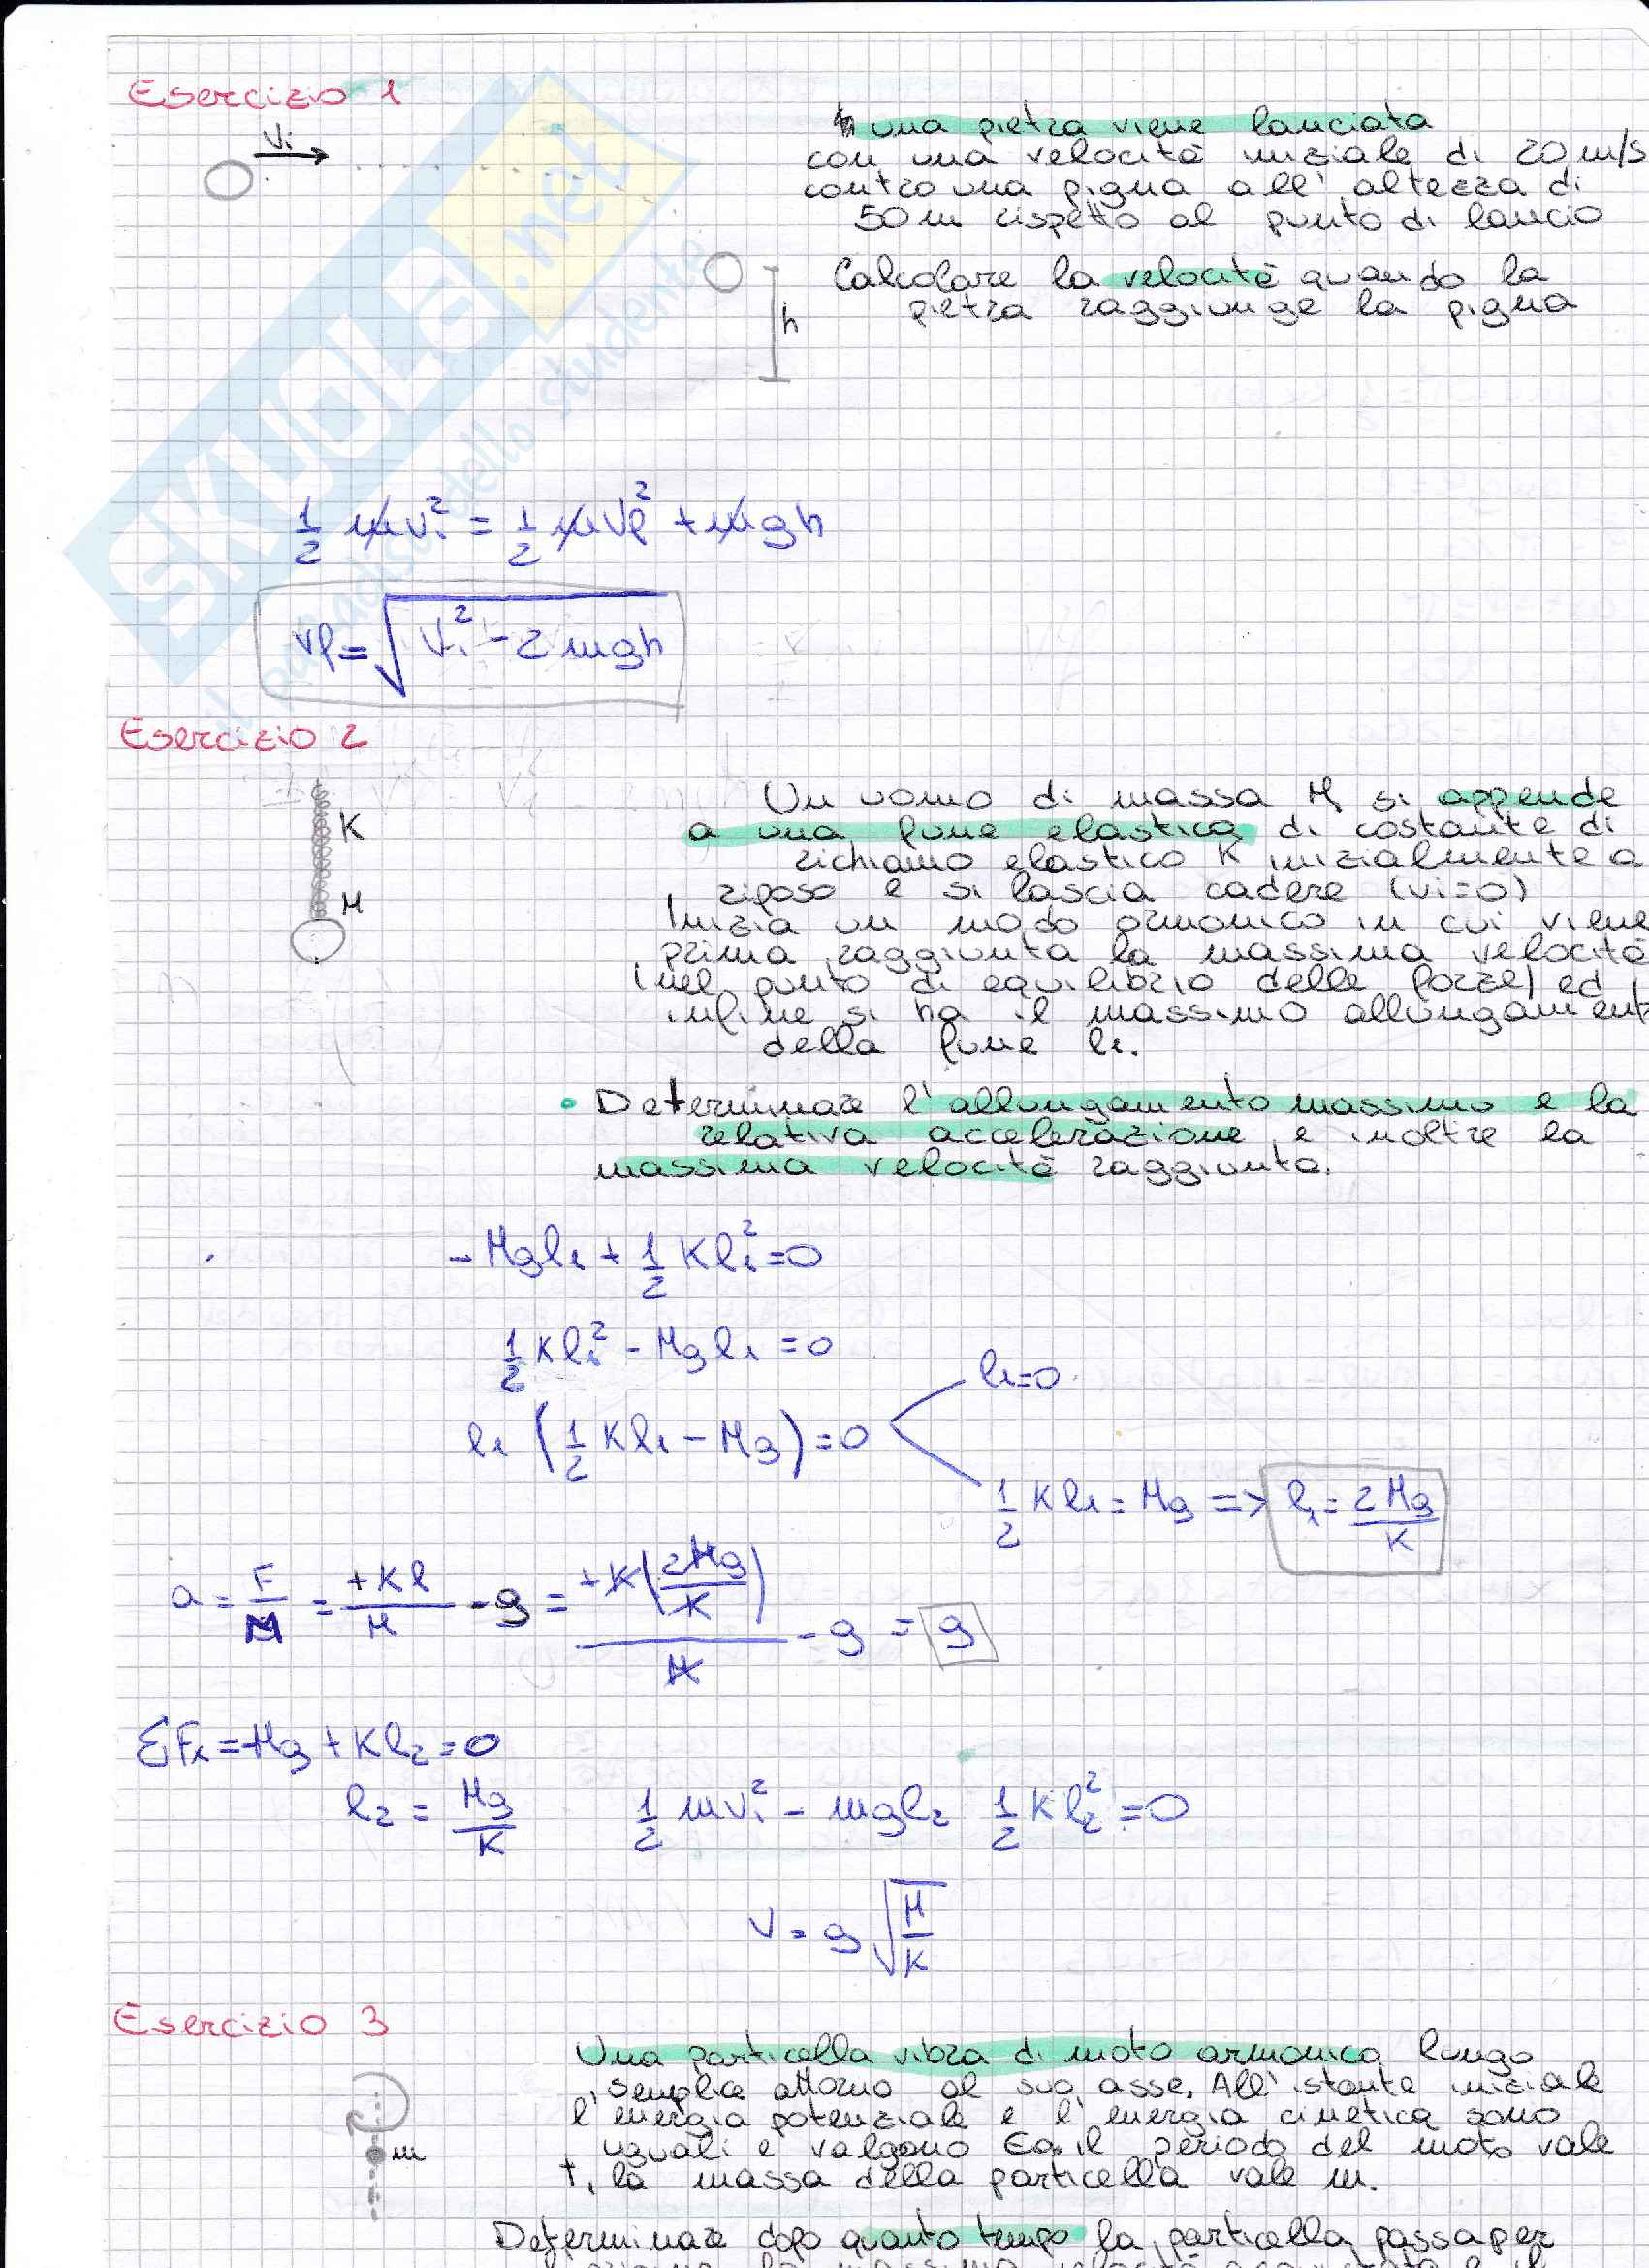 Esercizio 1
Vi
una pietra viene lanciata
con una velocità iniziale di 20 m/s
contro una pigna all' altezza di
50 m rispetto al punto di lancio
Calcolare la velocità quando la
pietra raggiunge la pigna
h
SKUOLA.net
il paradiso dello studente
1/2 m vi² = 1/2 m vf² + mgh
vf = √(vi² - 2mgh)
Esercizio 2
K
M
Un uomo di massa M, si appende
a una fune elastica di costante di
richiamo elastico K inizialmente a
riposo e si lascia cadere (vi=0)
Inizia un modo armonico in cui viene
prima raggiunta la massima velocità
(nel punto di equilibrio delle forze) ed
infine si ha il massimo allungament
della fune l1.
• Determinare l'allungamento massimo e la
relativa accelerazione, e inoltre la
massima velocità raggiunta.
- Mgl1 + 1/2 Kl1² = 0
1/2 Kl1² - Mgl1 = 0
l1 (1/2 Kl1 - Mg) = 0
l1 = 0
1/2 Kl1 = Mg => l1 = 2Mg/K
a = F/M = +Kl/M - g = +K(2Mg/K)/M - g = g
ΣFi = -Mg + Kl2 = 0
l2 = Mg/K 1/2 mvi² - mgl2 1/2 Kl2² = 0
V = g √(M/K)
Esercizio 3
Una particella vibra di moto armonico lungo
semplice attorno al suo asse. All' istante iniziale
l'energia potenziale e l' energia cinetica sono
uguali e valgono E0, il periodo del moto vale
t, la massa della particella vale m.
m
Determinare dopo quanto tempo la particella passa per